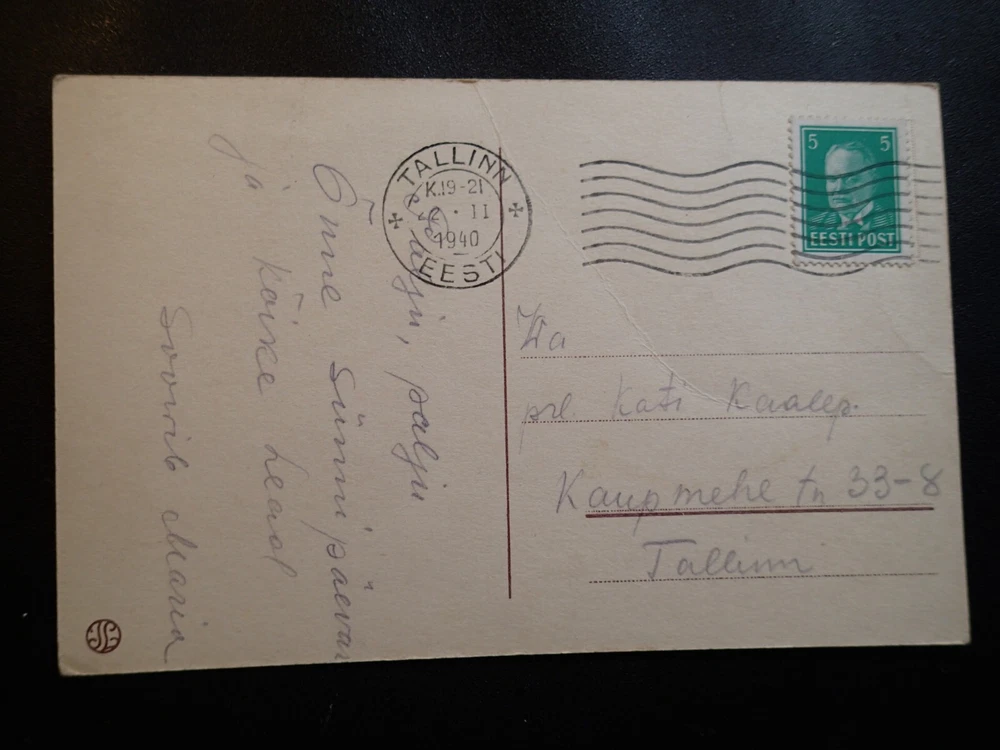 Palju, palju
Õnne Sünnipäevaks
ja kõike head
Soovib Maria
TALLINN
K.19-21
II
1940
EESTI
5 5
EESTI POST
Pra
prl Kati Kaalep.
Kaupmehe tn 33-8
Tallinn